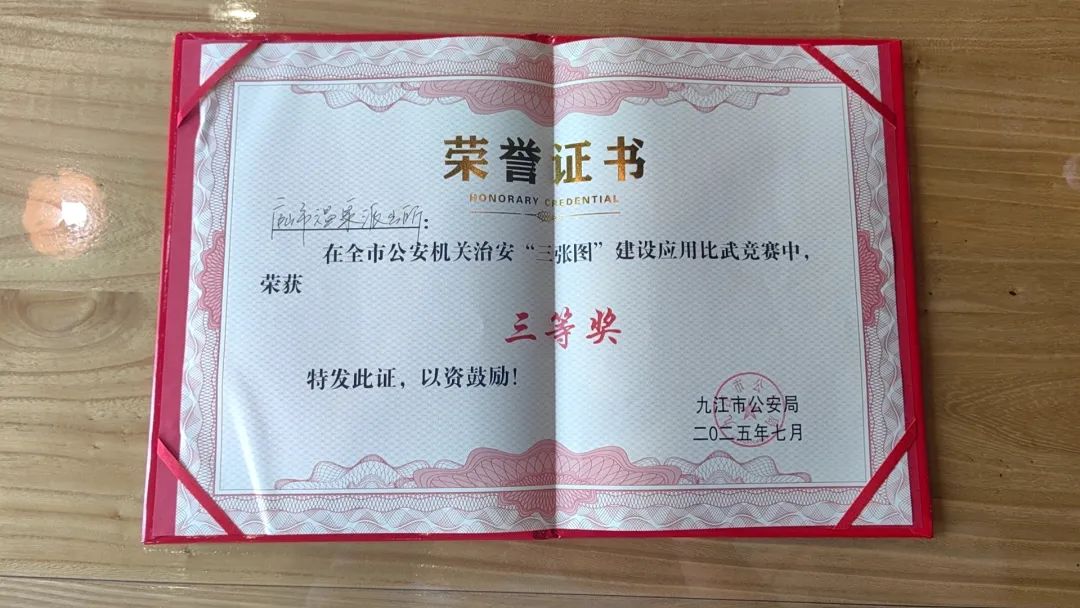 荣誉证书
HONORARY CREDENTIAL
庐市温泉派出所:
在全市公安机关治安“三张图”建设应用比武竞赛中,
荣获
三等奖
特发此证,以资鼓励!
九江市公安局
二〇二五年七月